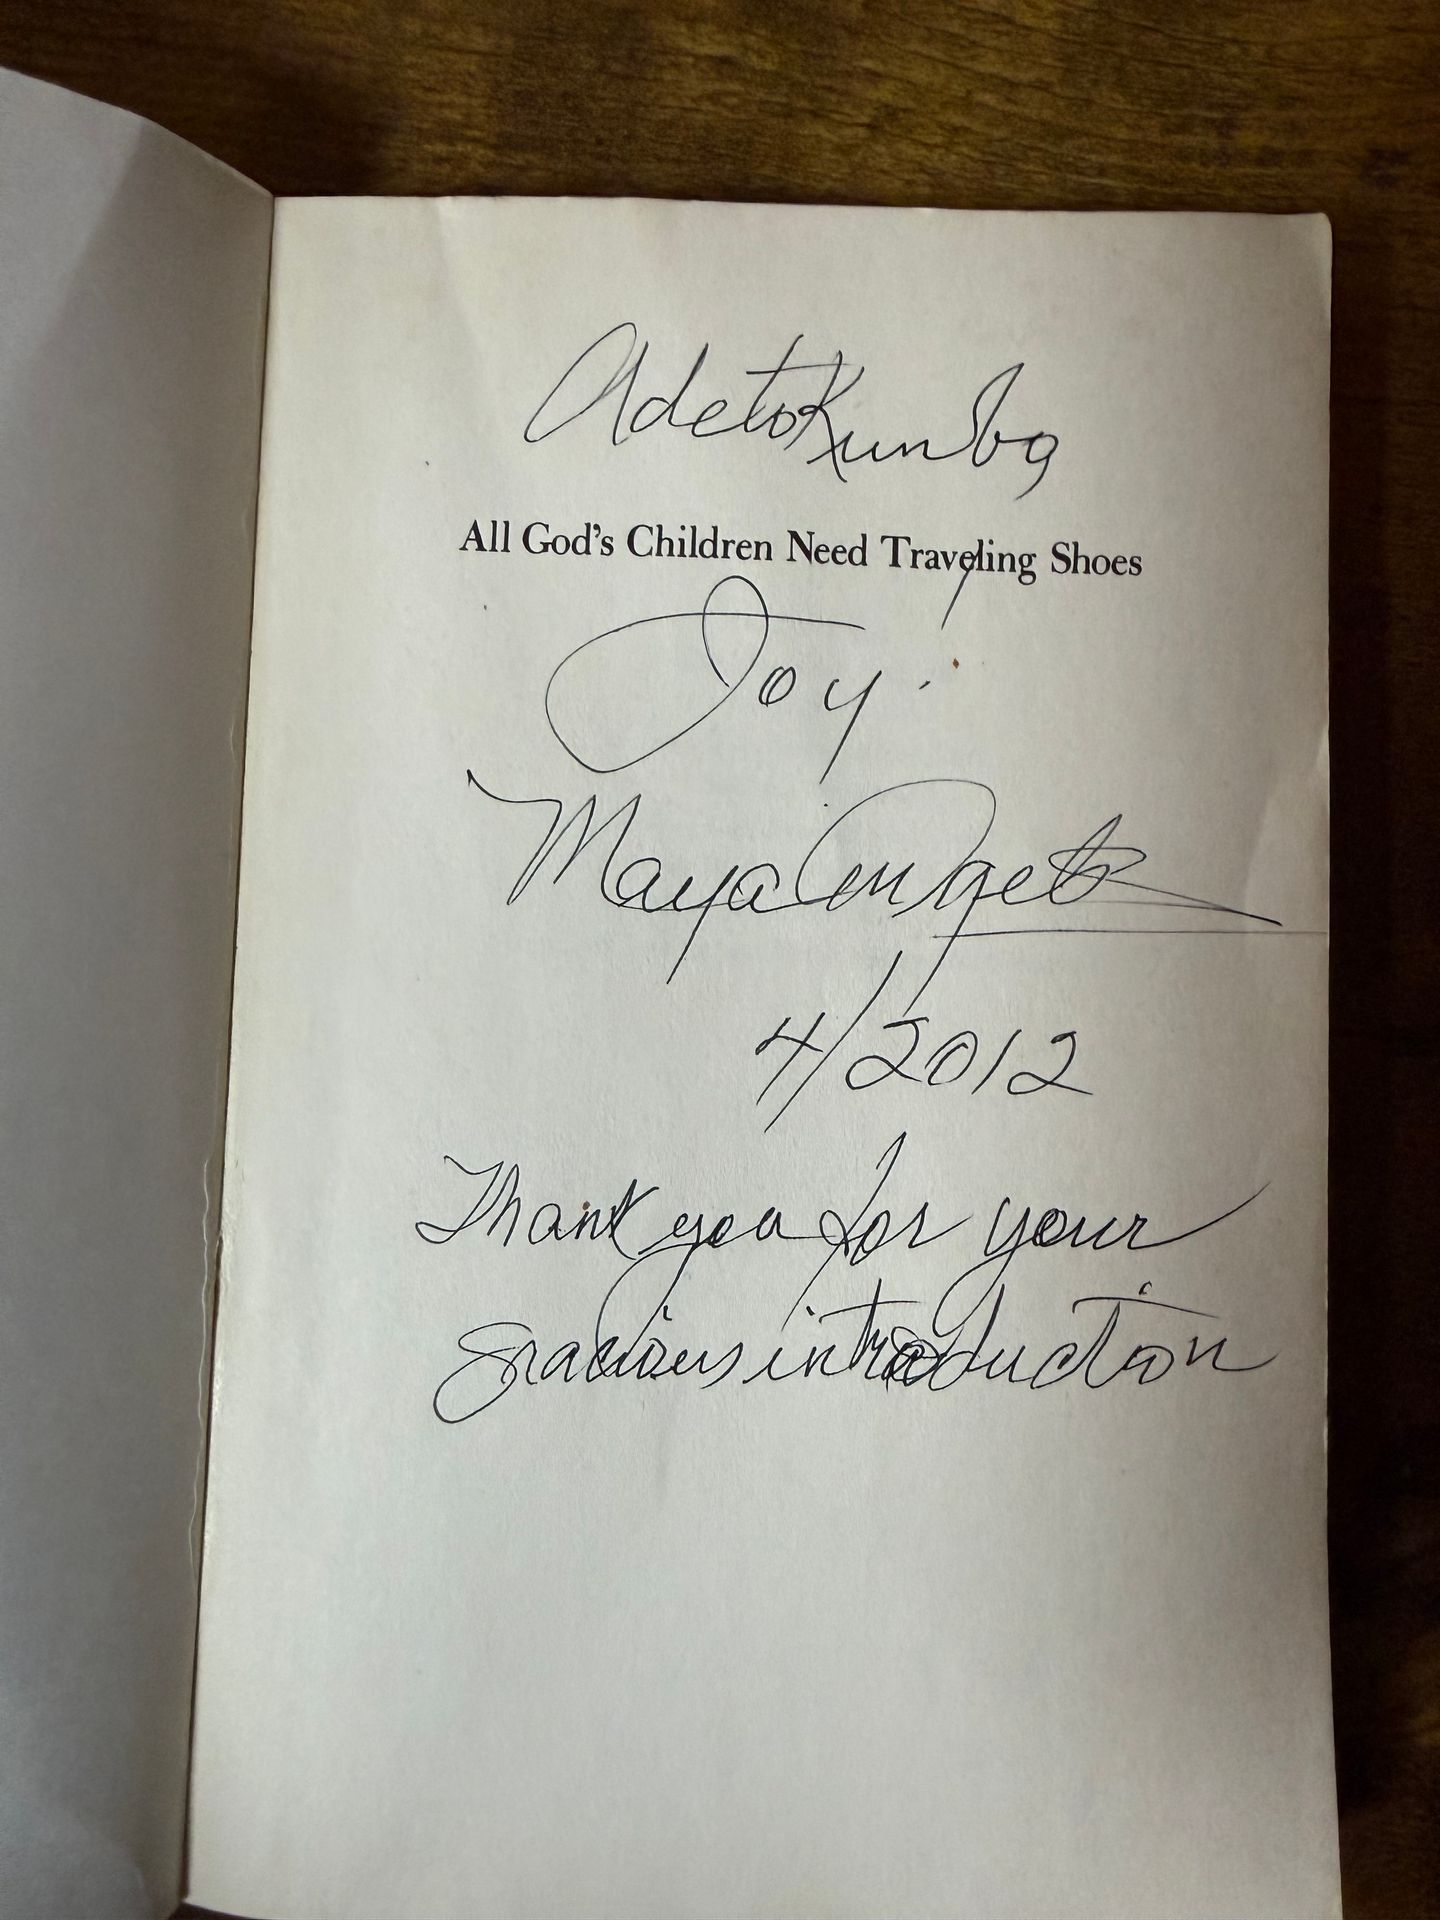 AdetoKunbo
All God's Children Need Traveling Shoes
Joy!
Maya Angelou
4/2012
Thank you for your
gracious introduction